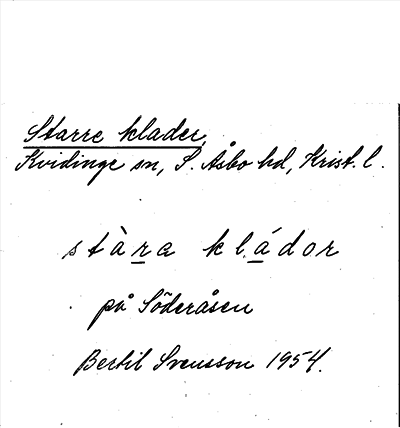 Starre klader,
Kvidinge sn, S. Åsbo hd, Krist. l.
stàræ kládor
på Söderåsen
Bertil Svensson 1954.